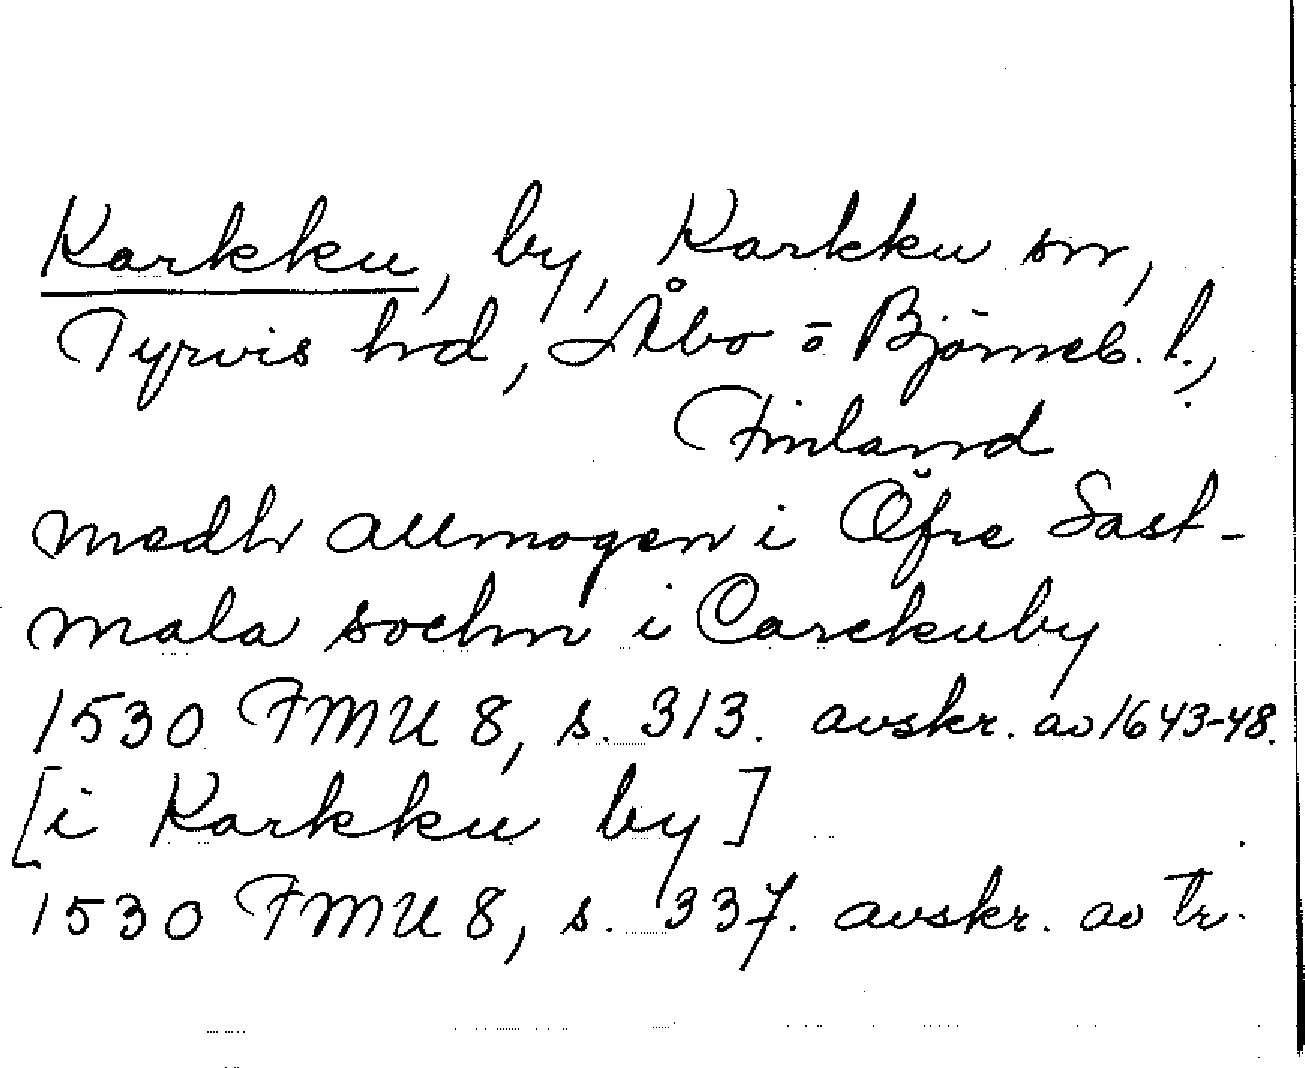 Karkku, by, Karkku sn,
Tyrvis hrd, Åbo o Björneb. l.,
Finland
medh allmogen i Öfre Sast-
mala sochn i Carckuby
1530 FMU 8, s. 313. avskr. av 1643-48.
[i Karkku by]
1530 FMU 8, s. 337. avskr. av tr.